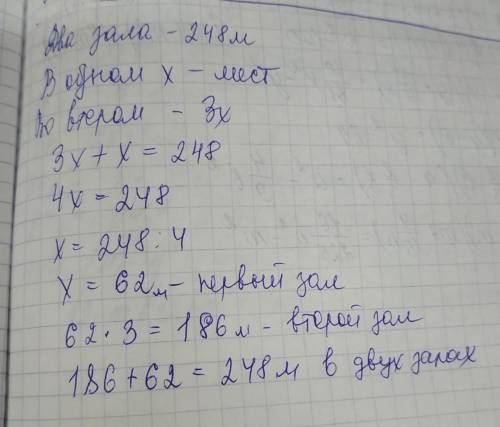 Два зала - 248м
В одном х - мест
Во втором - 3х
3х + х = 248
4х = 248
х = 248 : 4
х = 62м - первый зал
62 · 3 = 186м - второй зал
186 + 62 = 248м в двух залах